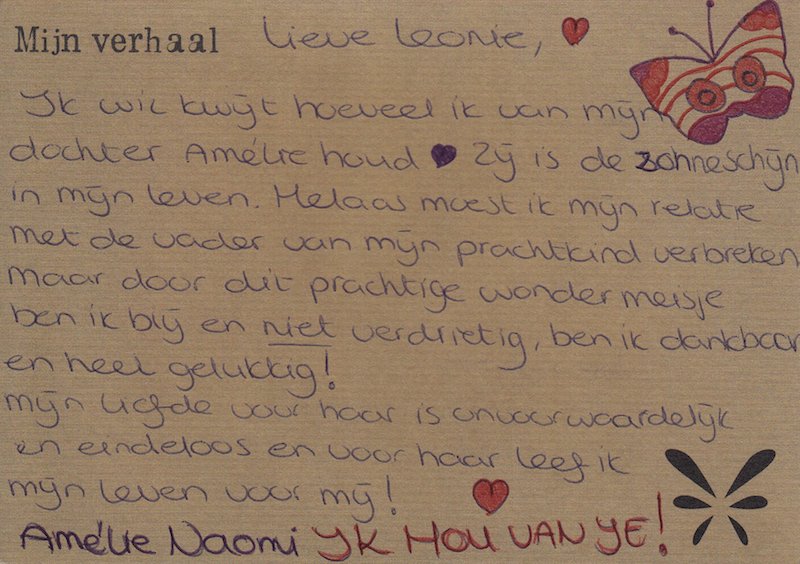 Mijn verhaal Lieve Leonie,
Ik wil kwijt hoeveel ik van mijn
dochter Amélie houd Zij is de zonneschijn
in mijn leven. Helaas moest ik mijn relatie
met de vader van mijn prachtkind verbreken
maar door dit prachtige wondermeisje
ben ik blij en niet verdrietig, ben ik dankbaar
en heel gelukkig!
mijn liefde voor haar is onvoorwaardelijk
en eindeloos en voor haar leef ik
mijn leven voor mij!
Amélie Naomi IK HOU VAN JE!